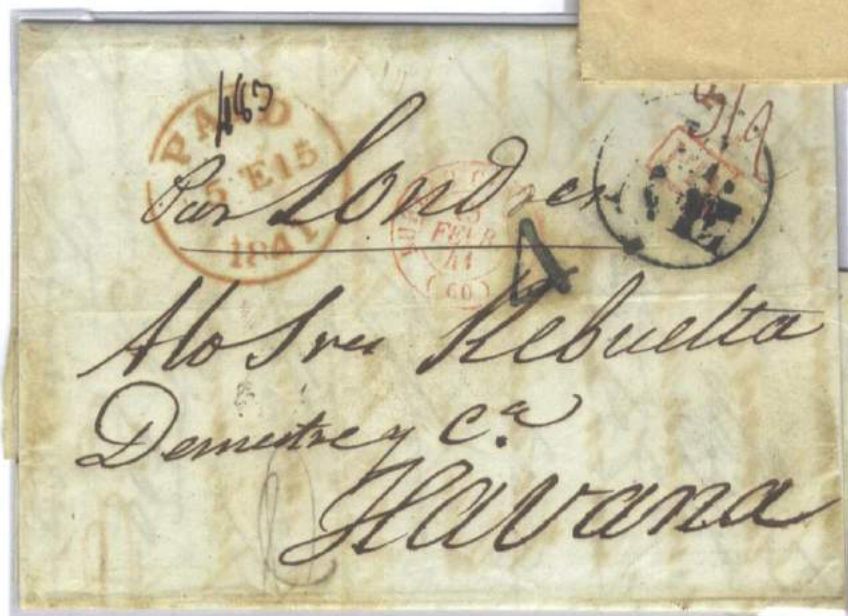 483
PAID
5 E 15
1841
Por Londres
FEVR
41
(60)
4
A los Sres Rebuelta
Demestre y Ca.
Havana